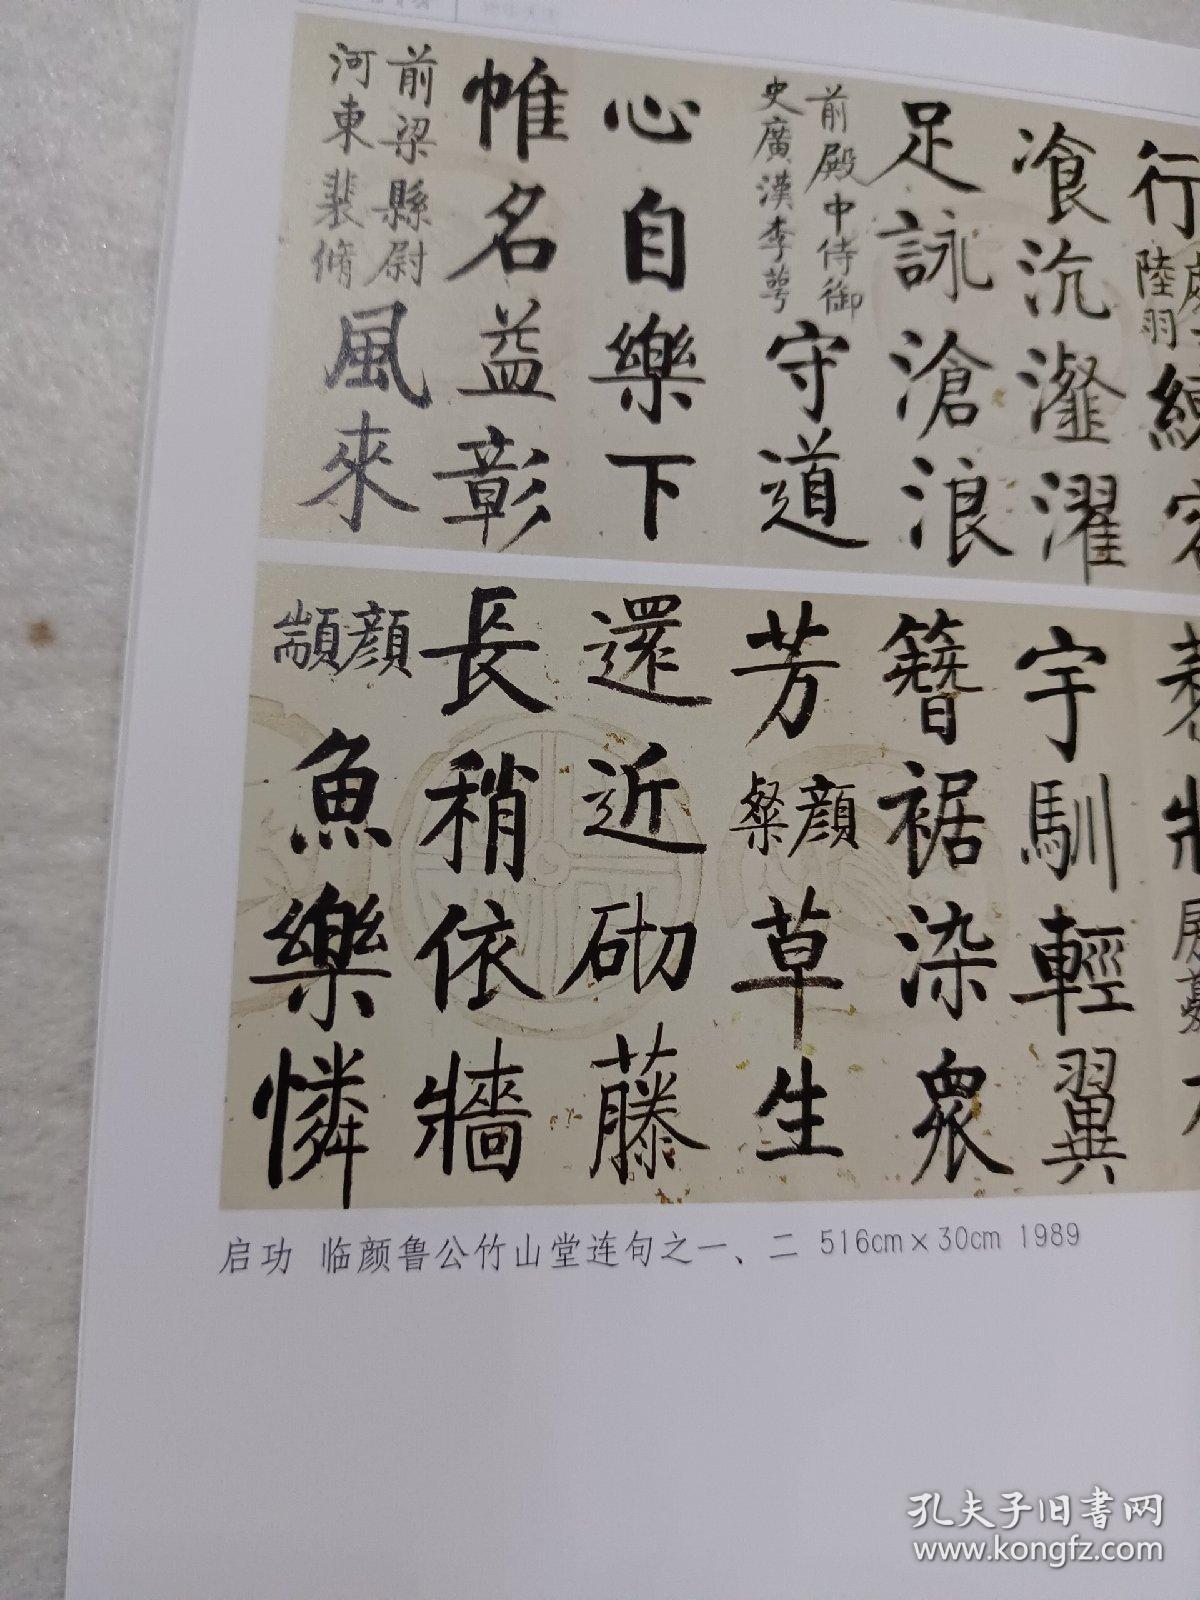 行
陸羽
飡沆瀣濯
足詠滄浪
前殿中侍御
史廣漢李萼
守道
心自樂下
帷名益彰
前梁縣尉
河東裴脩
風來
宇馴輕翼
簪裾染眾
芳
顏
粲
草生
還近砌藤
長稍依牆
顏
顓
魚樂憐
启功 临颜鲁公竹山堂连句之一、二 516cm×30cm 1989
孔夫子旧书网
www.kongfz.com